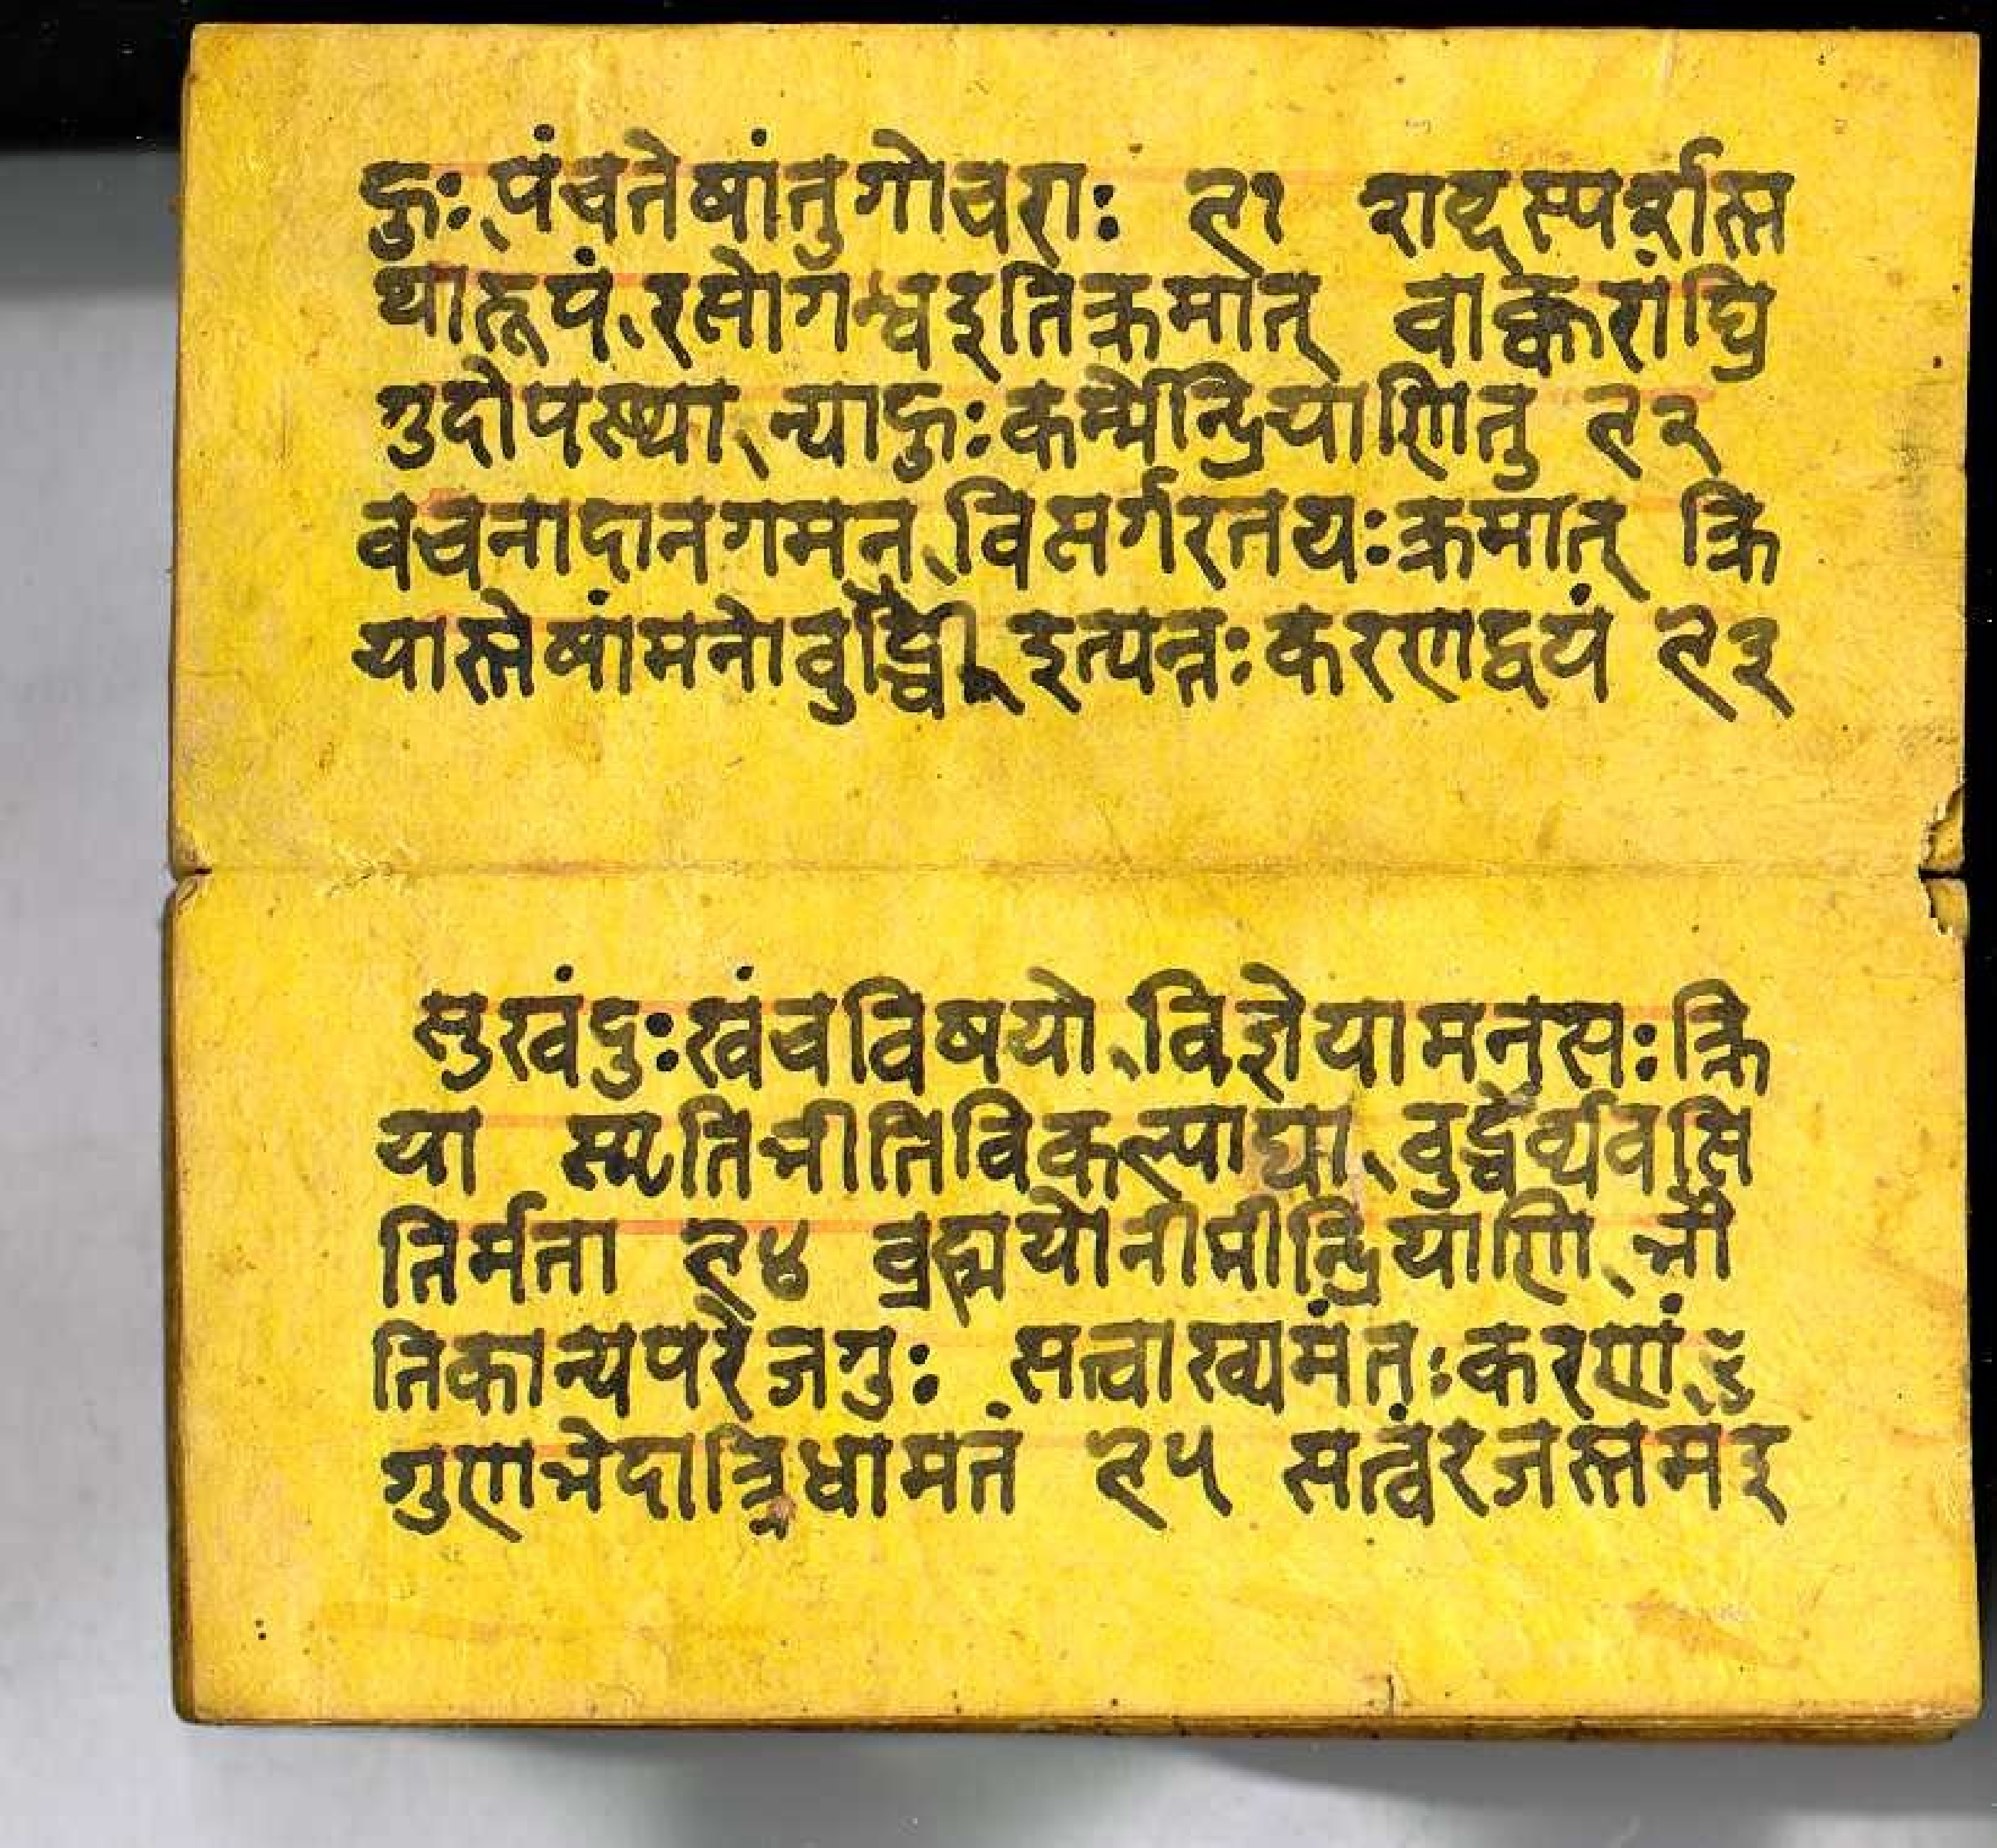 हुः पंचतेषांतुगोचराः २१ शब्दस्पर्शास्त
थारूपं रसोगन्धइतिक्रमात् वाक्करांघ्रि
गुदोपस्था न्याहुःकर्म्मेन्द्रियाणितु २२
वचनादानगमन विसर्गरतयःक्रमात् क्रि
यास्तेषांमनोबुद्धी इत्यन्तःकरणद्वयं २३
सुखंदुःखंचविषयो विज्ञेयामनसःक्रि
या स्मृतिभीतिविकल्पाद्या बुद्धेर्व्यवसि
तिर्मता २४ ब्रह्मयोनीनीन्द्रियाणि भौ
तिकान्यपरेजगुः सत्त्वाख्यमंतःकरणं
गुणभेदात्त्रिधामतं २५ सत्वंरजस्तमइ